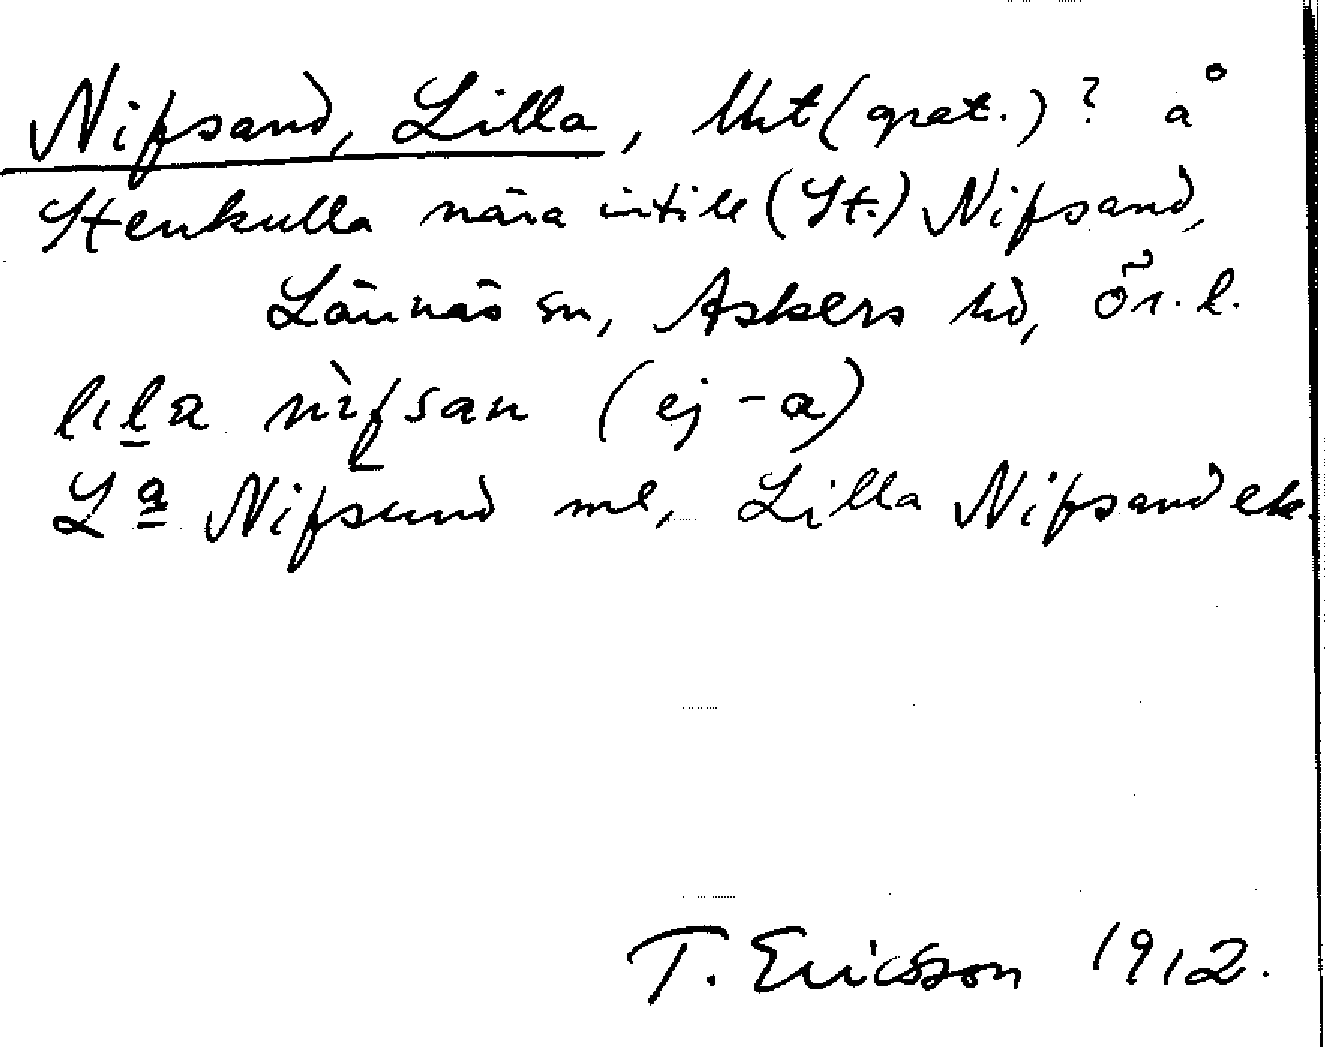 Nifsand, Lilla, lht (grat.)? å
Stenkulla nära intill (St.) Nifsand,
Lännäs sn, Askers hd, Ör. l.
lıla nìfsan (ej -a)
La Nifsund ml, Lilla Nifsand ek.
T. Ericsson 1912.